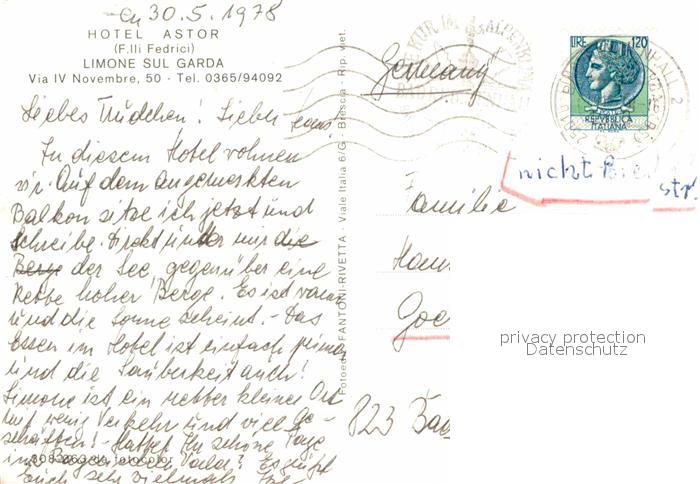 30.5.1978
HOTEL ASTOR
(F.lli Fedrici)
LIMONE SUL GARDA
Via IV Novembre, 50 - Tel. 0365/94092
Liebes Trudchen! Lieber Hans!
In diesem Hotel wohnen
wir. Auf dem angemerkten
Balkon sitze ich jetzt und
schreibe. Direkt unter mir die
Berge der See, gegenüber eine
Kette hoher Berge. Es ist warm
und die Sonne scheint. - Das
Essen im Hotel ist einfach prima
und die Sauberkeit auch!
Limone ist ein netter kleiner Ort
mit wenig Verkehr und viel Ge-
schäften! - Hattet Ihr schöne Tage
im Wald? Es grüßt
Euch sehr vielmals
308 263 da fotocolor
Fotoed. FANTONI-RIVETTA - Viale Italia 6/G - Brescia - Rip. viet.
Germany
KUR IM
LIRE 120
REPVBBLICA
ITALIANA
nicht
str.
Familie
823
privacy protection
Datenschutz